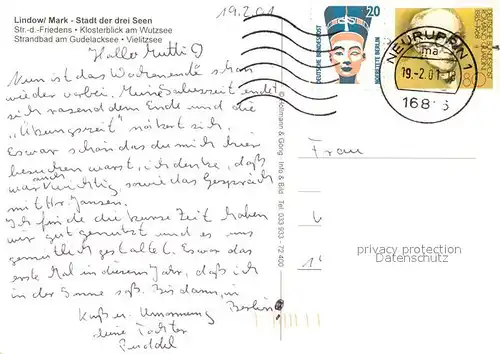 Lindow/ Mark - Stadt der drei Seen
Str.-d.-Friedens • Klosterblick am Wutzsee
Strandbad am Gudelacksee • Vielitzsee
19.2.01
Hallo Mutti
Nun ist das Wochenende schon
wieder vorbei. Meine Jahreszeit endet
sich rasend dem Ende und die
"Übungszeit" nähert sich.
Es war schön das du mich hier
besuchen warst, ich denke, daß
auch
war wichtig, sowie das Gespräch
mit Hr. Jansen.
Ich finde die kurze Zeit haben
wir gut genutzt und es uns
gemütlich gestaltet. Es war das
erste Mal in diesem Jahr, daß ich
in der Sonne saß. Bis dann, in
Berlin
Kuß u. Umarmung
deine Tochter
DEUTSCHE BUNDESPOST
20
NOFRETETE BERLIN
NEURUPPIN 1
ma
19.-2.01
16816
80
Frau
Info & Bild Tel. 033 933 - 72 400
privacy protection
Datenschutz